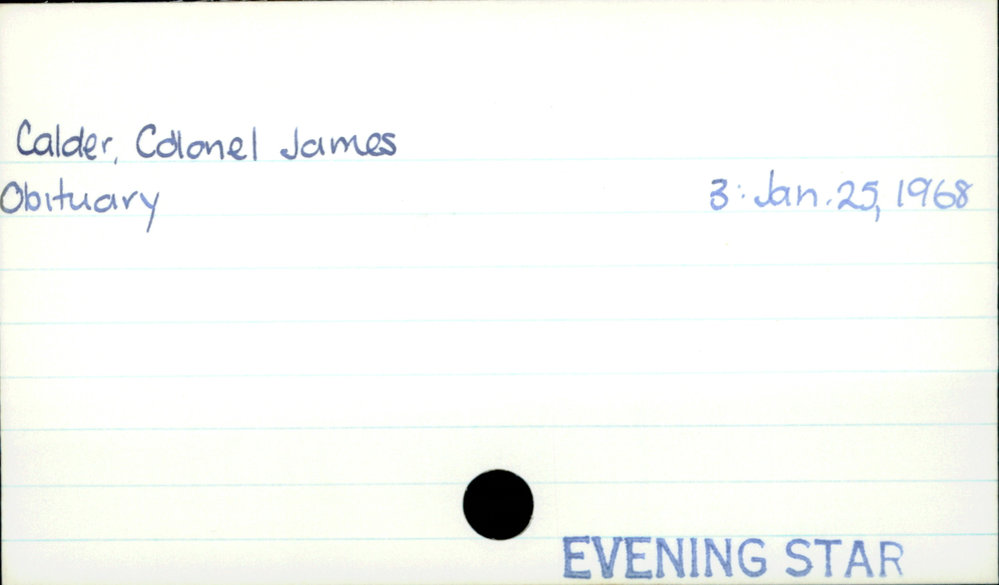 Calder, Colonel James
Obituary 3: Jan. 25, 1968
EVENING STAR